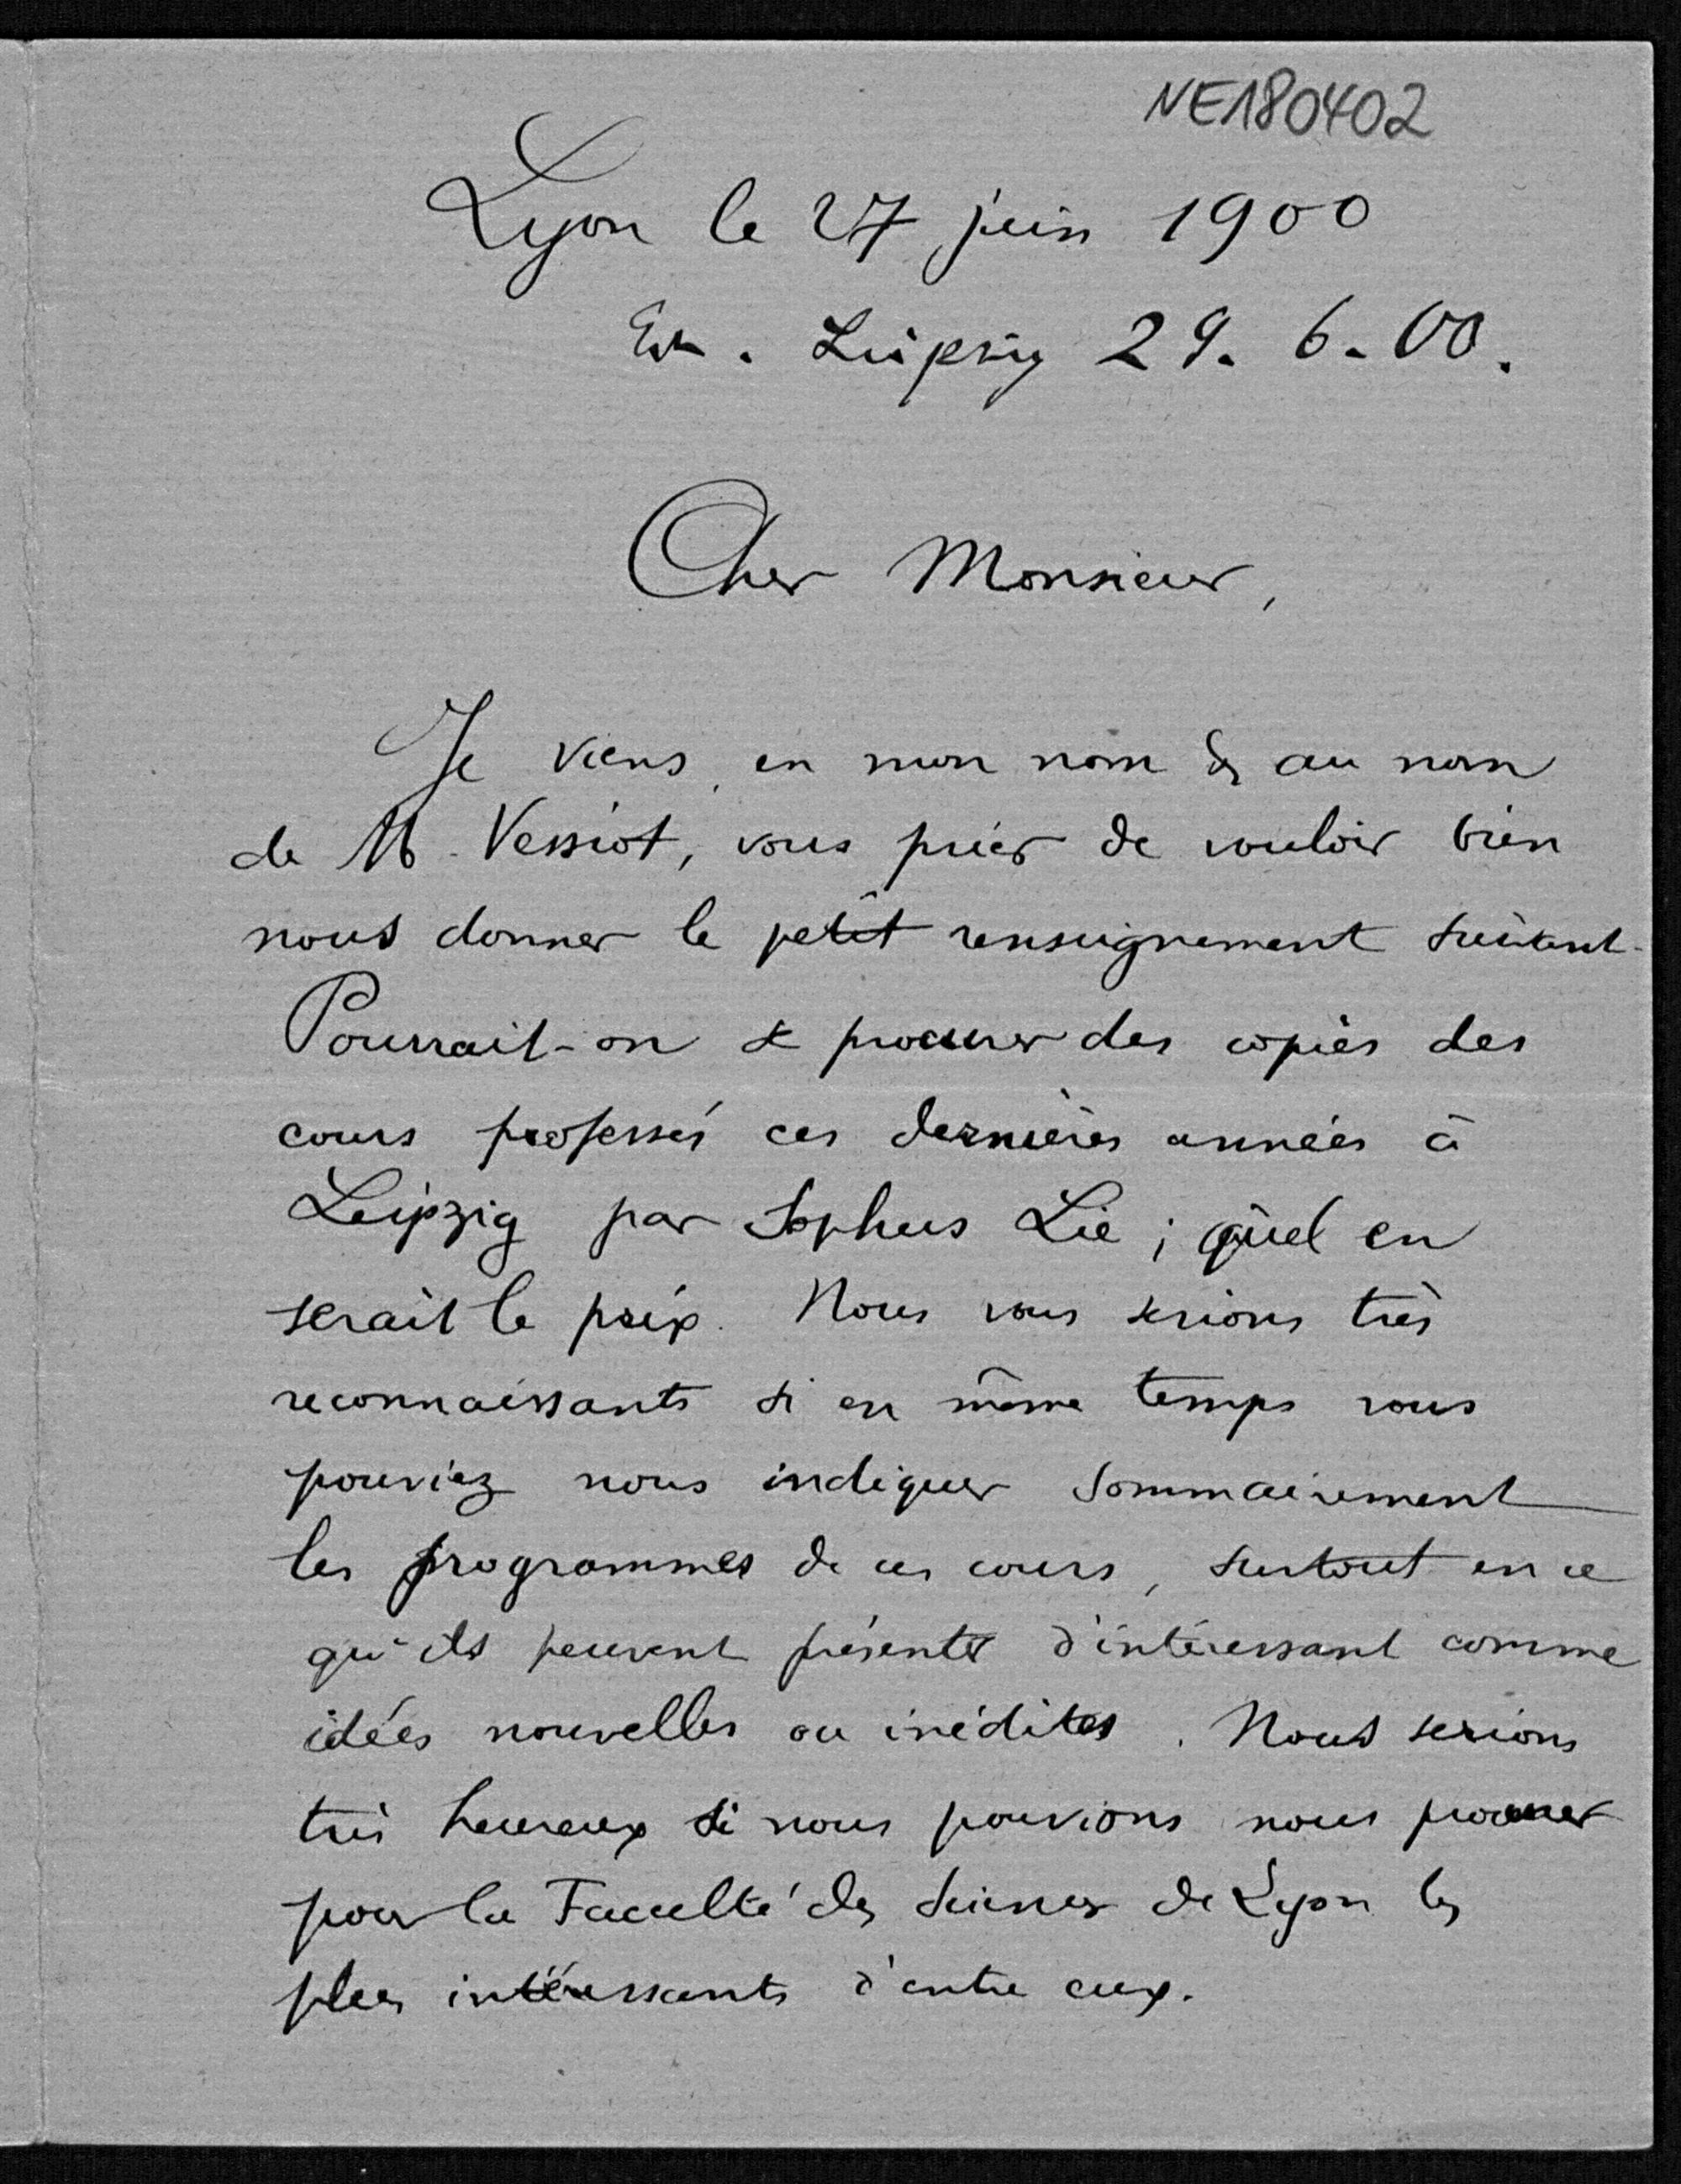 NE180402
Lyon le 27 juin 1900
Erh. Leipzig 29. 6. 00.
Cher Monsieur,
Je viens, en mon nom & au nom
de M. Vessiot, vous prier de vouloir bien
nous donner le petit renseignement suivant.
Pourrait-on se procurer des copies des
cours professés ces dernières années à
Leipzig par Sophus Lie ; quel en
serait le prix. Nous vous serions très
reconnaissants si en même temps vous
pouviez nous indiquer sommairement
les programmes de ces cours, surtout en ce
qu'ils peuvent présenter d'intéressant comme
idées nouvelles ou inédites. Nous serions
très heureux si nous pouvions nous procurer
pour la Faculté des Sciences de Lyon les
plus intéressants d'entre eux.